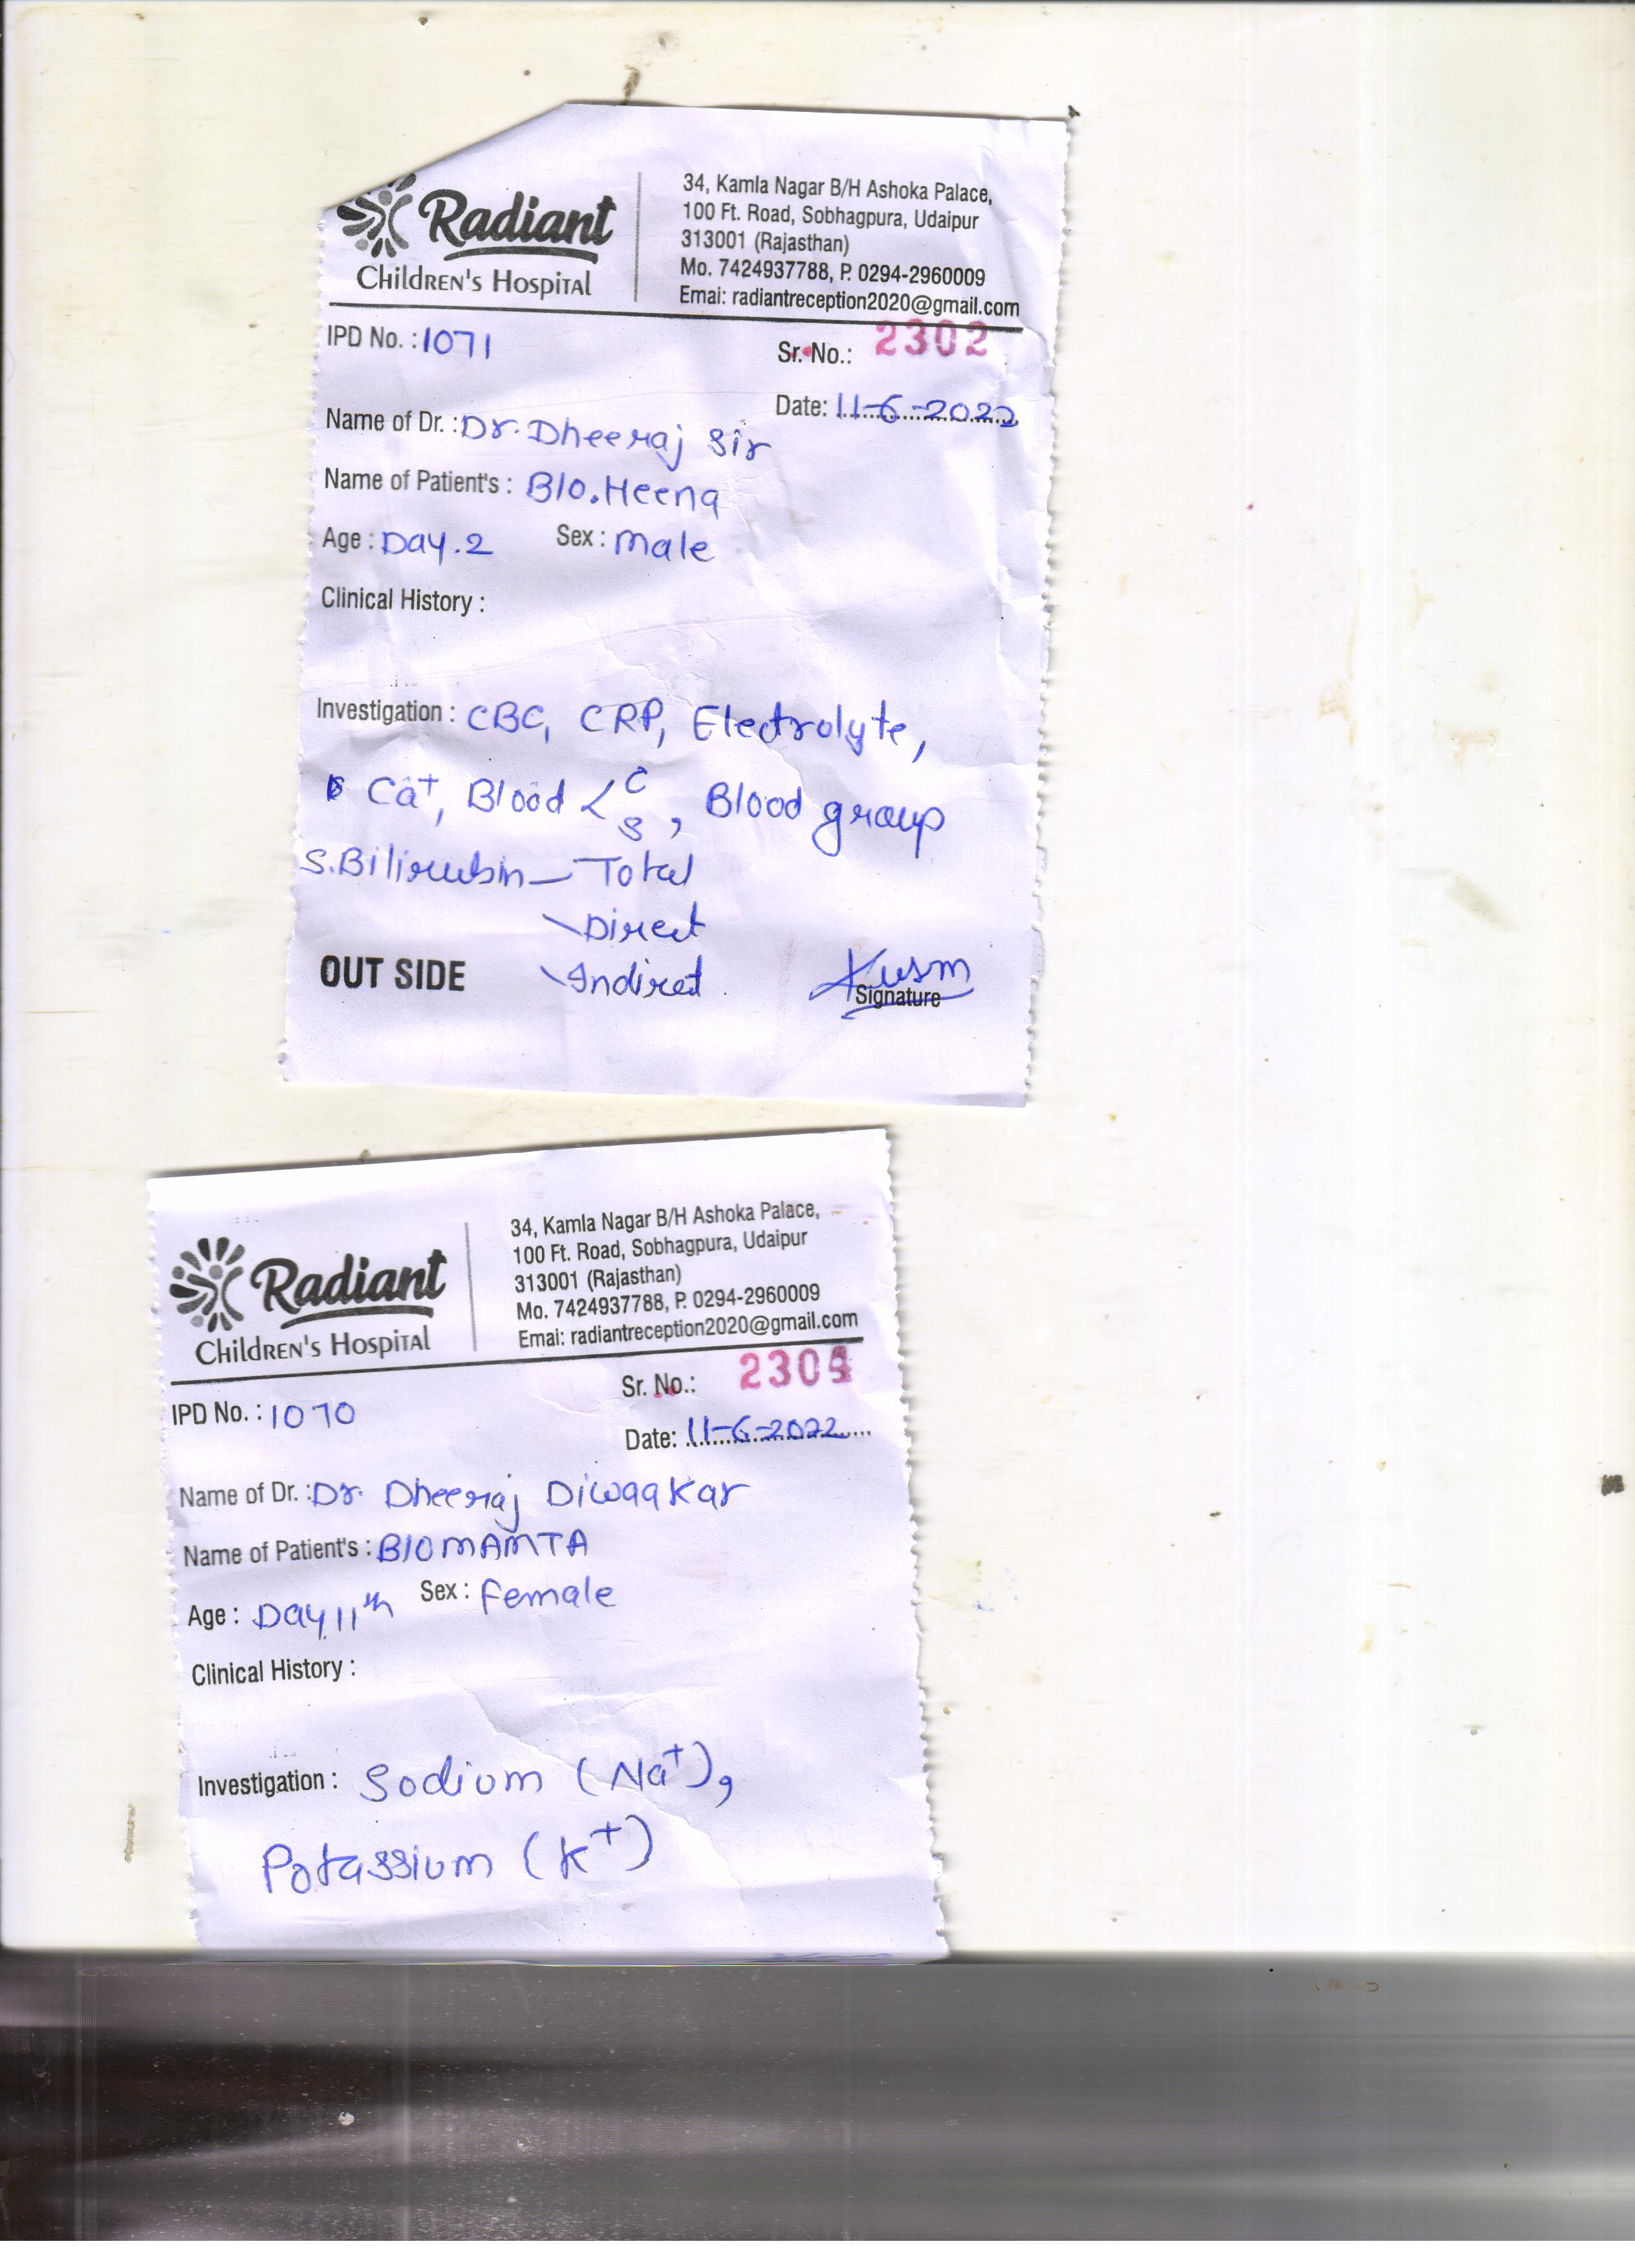 Radiant
Children's Hospital
34, Kamla Nagar B/H Ashoka Palace,
100 Ft. Road, Sobhagpura, Udaipur
313001 (Rajasthan)
Mo. 7424937788, P. 0294-2960009
Emai: radiantreception2020@gmail.com
IPD No. : 1071
Sr. No.: 2302
Date: 11-6-2022
Name of Dr. : Dr. Dheeraj Sir
Name of Patient's : B/o. Heena
Age : Day. 2 Sex : Male
Clinical History :
Investigation : CBC, CRP, Electrolyte,
Ca+, Blood < C S, Blood group
S. Bilirubin — Total
\ Direct
OUT SIDE \ Indirect
Kusm
Signature
Radiant
Children's Hospital
34, Kamla Nagar B/H Ashoka Palace,
100 Ft. Road, Sobhagpura, Udaipur
313001 (Rajasthan)
Mo. 7424937788, P. 0294-2960009
Emai: radiantreception2020@gmail.com
IPD No. : 1070
Sr. No.:
Date: 11-6-2022
Name of Dr. : Dr. Dheeraj Diwaakar
Name of Patient's : B/O MAMTA
Age : Day 11th Sex : Female
Clinical History :
Investigation : Sodium (Na+),
Potassium (K+)